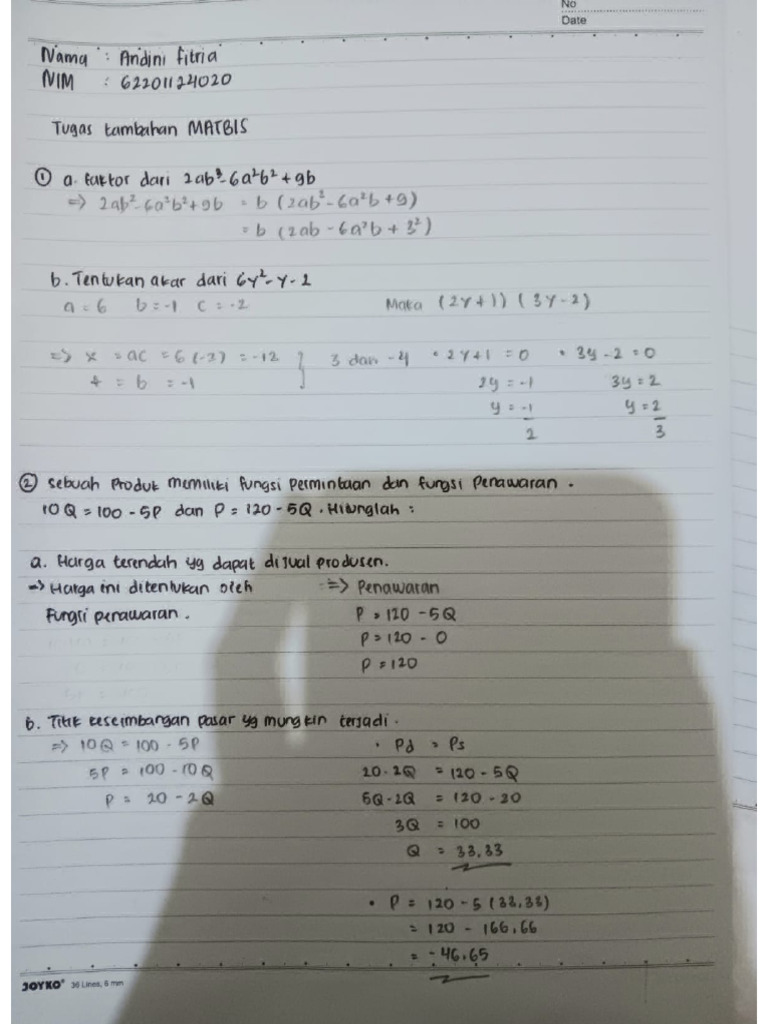 No
Date
Nama : Andini Fitria
NIM : 62201124020
Tugas tambahan MATBIS
① a. faktor dari 2ab³-6a²b²+9b
=> 2ab²-6a²b²+9b = b (2ab²-6a²b+9)
= b (2ab-6a²b+3²)
b. Tentukan akar dari 6y²-y-2
a = 6 b = -1 c = -2 Maka (2y+1) (3y-2)
=> x = ac = 6(-2) = -12 } 3 dan -4 • 2y+1 = 0 • 3y-2 = 0
+ = b = -1 2y = -1 3y = 2
y = -1 y = 2
2 3
② Sebuah Produk memiliki fungsi permintaan dan fungsi penawaran.
10Q = 100 - 5P dan P = 120 - 5Q. Hitunglah :
a. Harga terendah yg dapat dijual produsen.
=> Harga ini ditentukan oleh => Penawaran
Fungsi penawaran. P = 120 - 5Q
P = 120 - 0
P = 120
b. Titik keseimbangan pasar yg mungkin terjadi.
=> 10Q = 100 - 5P • Pd = Ps
5P = 100 - 10Q 20-2Q = 120 - 5Q
P = 20 - 2Q 5Q-2Q = 120 - 20
3Q = 100
Q = 33,33
• P = 120 - 5 (33,33)
= 120 - 166,66
= -46,65
JOYKO® 36 Lines, 6 mm